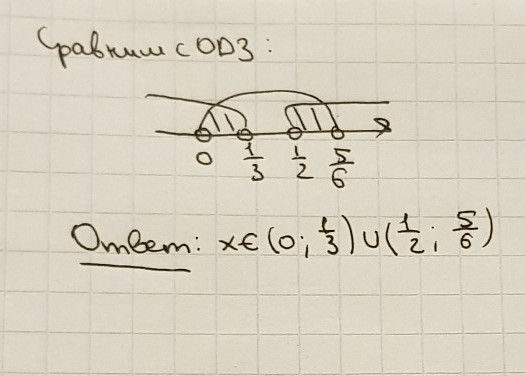 Сравним с ОДЗ:
0 1/3 1/2 5/6
Ответ: x∈(0; 1/3)∪(1/2; 5/6)